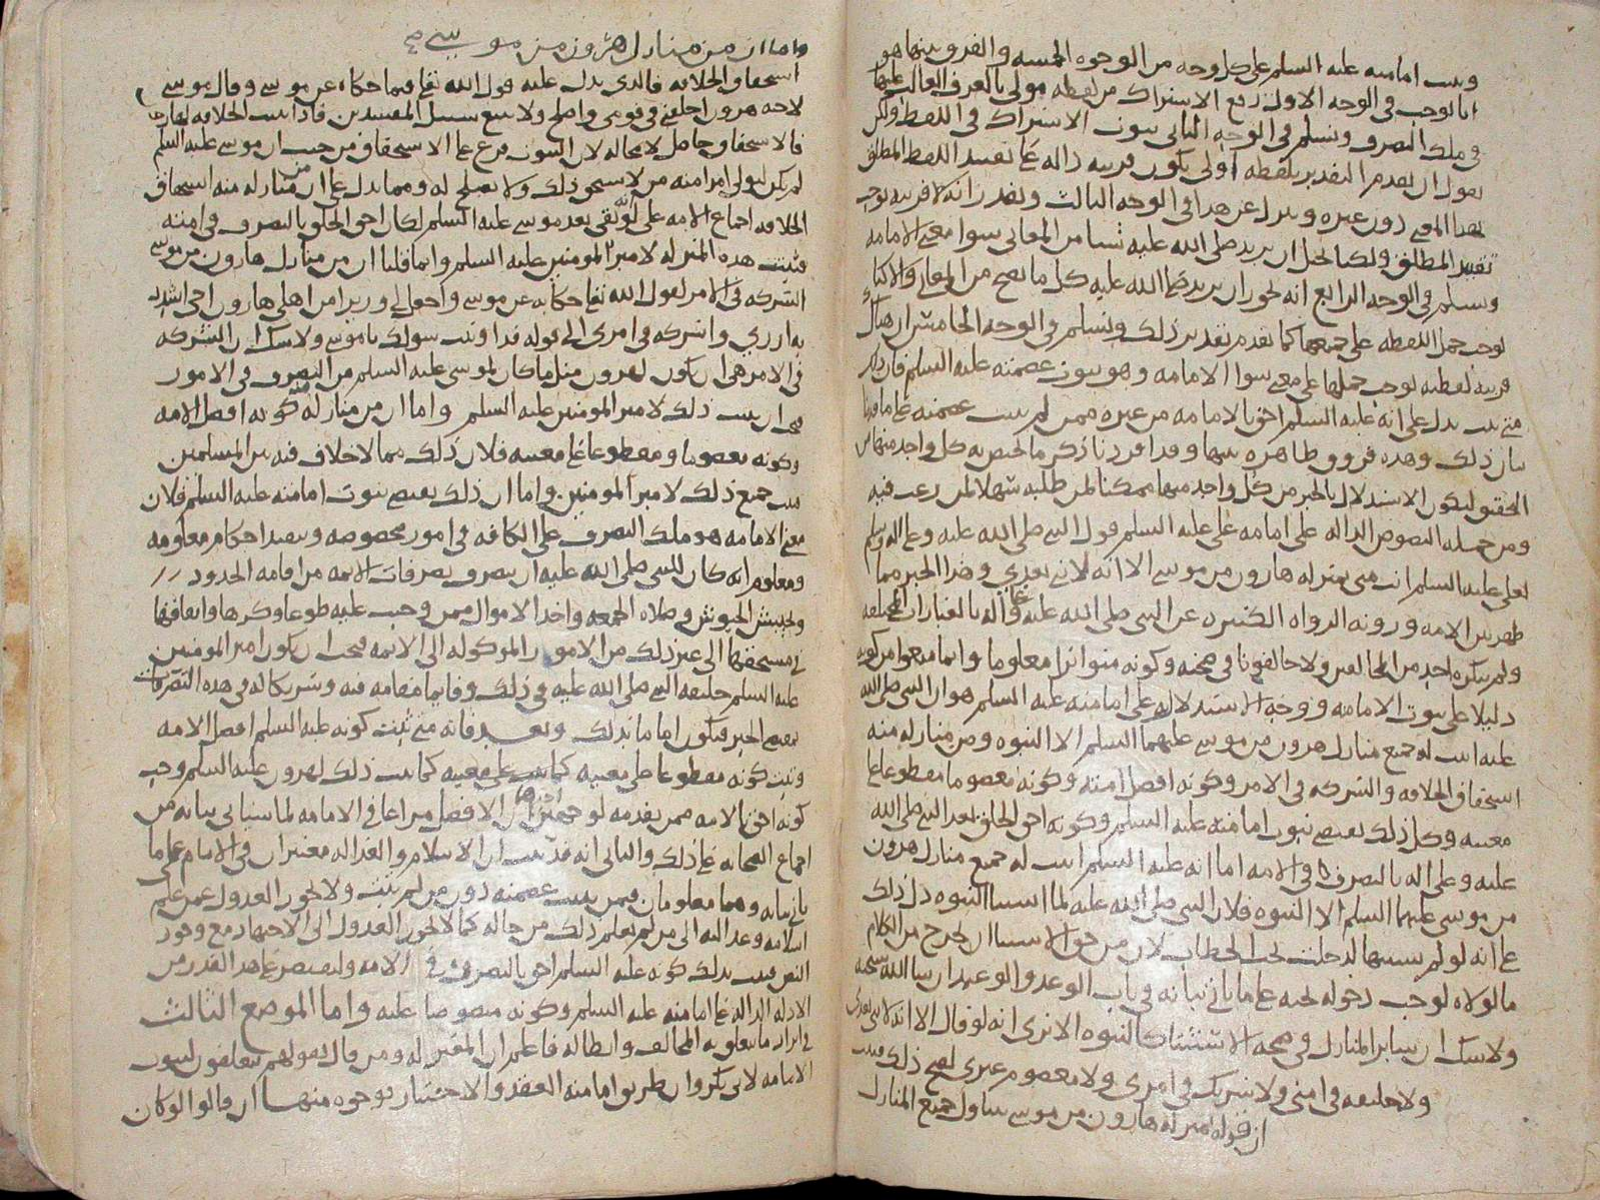 وثبت امامته عليه السلم على كل وجه من الوجوه الخمسه والفرق بينها هو
انا نوجب في الوجه الاول رفع الاشتراك من لفظه مولى بالعرف الغالب عليها
في ملك التصرف ونسلم في الوجه الثاني ثبوت الاشتراك في اللفظ ولكن
نقول ان تقدم التقدير بلفظه اولى يكون قرينه داله على تقييد اللفظ المطلق
بهذا المعنى دون غيره ونزل عن هذا في الوجه الثالث ونقدر انه لا قرينه توجب
تقييد المطلق ولكنا نحيل ان يريد صلى الله عليه شيا من المعاني سوا معنى الامامه
ونسلم في الوجه الرابع انه يجوز ان يريد صلى الله عليه كل ما يصح من المعاني والا كنا
نوجب حمل اللفظه على جميعها كما تقدم تقدير ذلك ونسلم في الوجه الخامس ان هناك
قرينه لفظيه توجب حملها على معنى سوا الامامه وهو ثبوت عصمته عليه السلم فان ذلك
متى ثبت يدل على انه عليه السلم احق بالامامه من غيره ممن لم يثبت عصمته على ما قدمنا
بيان ذلك وهذه فروق ظاهره بينها وقد افردنا ذكر ما يختص به كل واحد منها من
التحقيق ليكون الاستدلال بالخبر من كل واحد منها ممكنا لمن طلبه سهلا لمن رغب فيه
ومن جمله النصوص الداله على امامه على عليه السلم قول النبي صلى الله عليه وعلى اله وسلم
لعلى عليه السلم انت مني بمنزله هارون من موسى الا انه لا نبي بعدي وهذا الخبر مما
ظهر بين الامه وروته الرواه الكثيره عن النبي صلى الله عليه وعلى اله بالعبارات المختلفه
ولم ينكره احد من المخالفين ولا خالفونا في صحته وكونه متواترا معلوما وانما منعوا من كونه
دليلا على ثبوت الامامه ووجه الاستدلال به على امامته عليه السلم هو ان النبي صلى الله
عليه اثبت له جميع منازل هرون من موسى عليهما السلم الا النبوه ومن منازله منه
استحقاق الخلافه والشركه في الامر وكونه افضل امته وكونه معصوما مقطوعا على
مغيبه وكل ذلك يقتضي ثبوت امامته عليه السلم وكونه احق الخلق بعد النبي صلى الله
عليه وعلى اله بالتصرف في الامه اما انه عليه السلم اثبت له جميع منازل هرون
من موسى عليهما السلم الا النبوه فلان النبي صلى الله عليه لما استثنا النبوه دل ذلك
على انه لو لم يستثنها لدخلت تحت الخطاب لان من حق الاستثنا ان يخرج من الكلام
ما لولاه لوجب دخوله تحته على ما ياتي بيانه في باب الوعد والوعيد ان شا الله سبحنه
ولا شك ان ساير المنازل في صحه الاستثنا كالنبوه الا ترى انه لو قال الا انه لا نبي بعدي
ولا خليفه في امتي ولا شريك في امري ولا معصوم غيري لصح ذلك فثبت
ان قوله بمنزله هارون من موسى يتناول جميع المنازل
واما ان من منازل هرون من موسى
استحقاق الخلافه فالذي يدل عليه قول الله تعالى فيما حكاه عن موسى وقال موسى
لاخيه هرون اخلفني في قومي واصلح ولا تتبع سبيل المفسدين فاذا ثبت الخلافه لهارون
فالاستحقاق حاصل لا محاله لان الثبوت فرع على الاستحقاق من حيث ان موسى عليه السلم
لم يكن ليولي امرا منه من لا يستحق ذلك ولا يصلح له ومما يدل على ان من منازله منه استحقاق
الخلافه اجماع الامه على انه لو بقي بعد موسى عليه السلم لكان احق الخلق بالتصرف في امته
فثبت هذه المنزله لامير المومنين عليه السلم وانما قلنا ان من منازل هارون من موسى
الشركه في الامر لقول الله تعالى حكايه عن موسى واجعل لي وزيرا من اهلي هارون اخي اشدد
به ازري واشركه في امري الى قوله قد اوتيت سولك يا موسى ولا شك ان الشركه
في الامر هي ان يكون لهرون مثل ما كان لموسى عليه السلم من التصرف في الامور
فيجب ان يثبت ذلك لامير المومنين عليه السلم واما ان من منازله منه كونه افضل الامه
وكونه معصوما ومقطوعا على مغيبه فلان ذلك مما لا خلاف فيه بين المسلمين
فثبت جميع ذلك لامير المومنين واما ان ذلك يقتضي ثبوت امامته عليه السلم فلان
معنى الامامه هو ملك التصرف على الكافه في امور مخصوصه وتنفيذ احكام معلومه
ومعلوم انه كان للنبي صلى الله عليه ان يتصرف تصرفات الايمه من اقامه الحدود
وتجييش الجيوش وصلاه الجمعه واخذ الاموال ممن وجب عليه طوعا وكرها وانفاقها
في مستحقها الى غير ذلك من الامور الموكوله الى الايمه فيجب ان يكون امير المومنين
عليه السلم خليفه النبي صلى الله عليه في ذلك وقايما مقامه فيه وشريكا له في هذه التصرفات
بمقتضى الخبر فيكون اماما بذلك وبعد فانه متى ثبت كونه عليه السلم افضل الامه
وثبت كونه مقطوعا على مغيبه كما ثبت ذلك لهرون عليه السلم وجب
كونه احق بالامه ممن يقدمه لوجهين احدهما ان الافضل مراعا في الامامه لما سياتي بيانه من
اجماع الصحابه على ذلك والثاني انه قد ثبت ان الاسلام والعداله معتبران في الامام على ما
ياتي بيانه وهما معلومان فيمن يثبت عصمته دون من لم تثبت ولا يجوز العدول عمن علم
اسلامه وعدالته الى من لم يعلم ذلك من حاله كما لا يجوز العدول الى الاجتهاد مع وجود
النص فثبت بذلك كونه عليه السلم احق بالتصرف في الامه ولنقتصر على هذا القدر من
الادله الداله على امامته عليه السلم وكونه منصوصا عليه واما الموضع الثالث
في ايراد ما يتعلق به المخالف وابطاله فاعلم ان المعتزله ومن قال بقولهم يتعلقون لثبوت
الامامه لابي بكر وان طريق امامته العقد والاختيار بوجوه منها ان قالوا لو كان